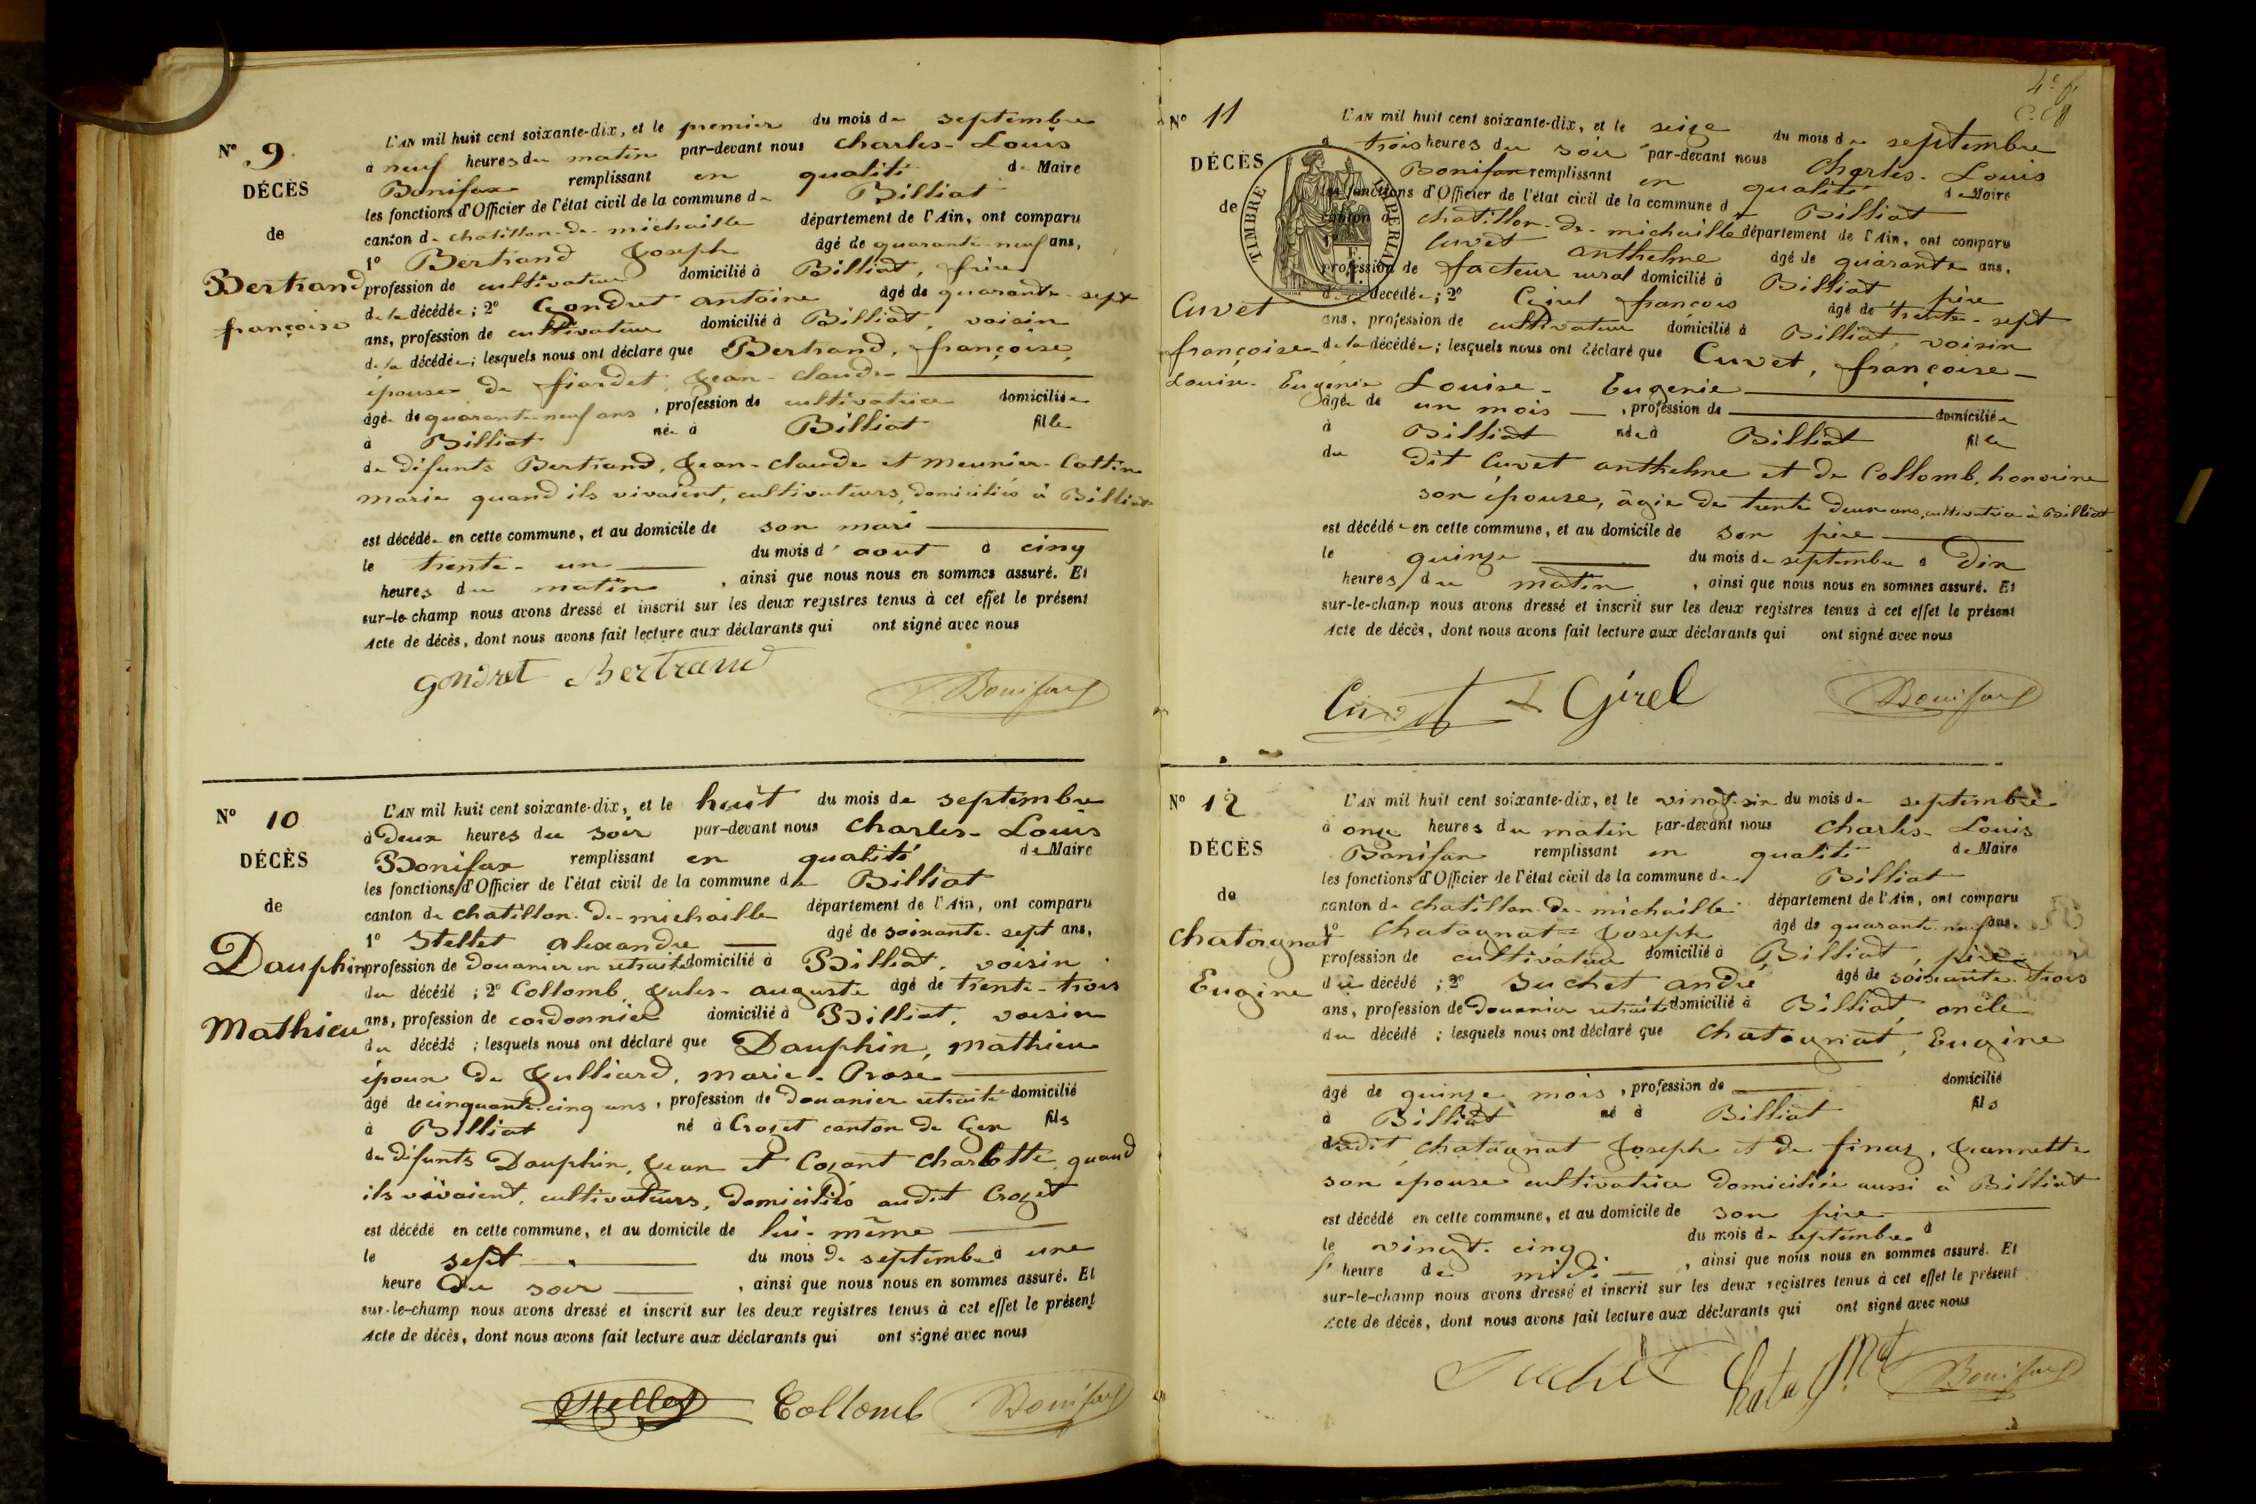 N° 9
DÉCÈS
de
Bertrand
françoise
L'AN mil huit cent soixante-dix, et le premier du mois de septembre
à neuf heures du matin par-devant nous Charles-Louis
Bonifax remplissant en qualité de Maire
les fonctions d'Officier de l'état civil de la commune de Billiat
canton de chatillon-de-michaille département de l'Ain, ont comparu
1° Bertrand Joseph âgé de quarante-neuf ans,
profession de cultivateur domicilié à Billiat, frère
de la décédée; 2° Gondret antoine âgé de quarante-sept
ans, profession de cultivateur domicilié à Billiat, voisin
de la décédée; lesquels nous ont déclaré que Bertrand, françoise,
épouse de fiardet, Jean-claude
âgée de quarante-neuf ans, profession de cultivatrice domiciliée
à Billiat née à Billiat fille
de défunts Bertrand, Jean-claude et meunier-Cottin
marie quand ils vivaient, cultivateurs, domiciliés à Billiat
est décédée en cette commune, et au domicile de son mari
le trente-un du mois d'aout à cinq
heures du matin, ainsi que nous nous en sommes assuré. Et
sur-le-champ nous avons dressé et inscrit sur les deux registres tenus à cet effet le présent
Acte de décès, dont nous avons fait lecture aux déclarants qui ont signé avec nous
gondret Bertrand Bonifax
N° 10
DÉCÈS
de
Dauphin
Mathieu
L'AN mil huit cent soixante-dix, et le huit du mois de septembre
à Deux heures du soir par-devant nous Charles-Louis
Bonifax remplissant en qualité de Maire
les fonctions d'Officier de l'état civil de la commune de Billiat
canton de chatillon-de-michaille département de l'Ain, ont comparu
1° Stellet alexandre âgé de soixante-sept ans,
profession de Douanier en retraite domicilié à Billiat, voisin
du décédé; 2° Collomb, Jules-auguste âgé de trente-trois
ans, profession de cordonnier domicilié à Billiat, voisin
du décédé; lesquels nous ont déclaré que Dauphin, mathieu
époux de Julliard, marie-
âgé de cinquante-cinq ans, profession de Douanier retraité domicilié
à Billiat né à Crozet canton de Gex fils
de défunts Dauphin, Jean et Charlotte, quand
ils vivaient, cultivateurs, domiciliés audit Crozet
est décédé en cette commune, et au domicile de lui-même
le sept du mois de septembre à une
heure du soir, ainsi que nous nous en sommes assuré. Et
sur-le-champ nous avons dressé et inscrit sur les deux registres tenus à cet effet le présent
Acte de décès, dont nous avons fait lecture aux déclarants qui ont signé avec nous
Stellet Collomb Bonifax
4e f.
N° 11
DÉCÈS
de
Cuvet
françoise-
Louise-Eugénie
TIMBRE IMPÉRIAL
L'AN mil huit cent soixante-dix, et le seize du mois de septembre
à trois heures du soir par-devant nous Charles-Louis
Bonifax remplissant en qualité de Maire
les fonctions d'Officier de l'état civil de la commune de Billiat
canton de chatillon-de-michaille département de l'Ain, ont comparu
1° Cuvet anthelme âgé de quarante ans,
profession de facteur rural domicilié à Billiat père
de la décédée; 2° Girel françois âgé de trente-sept
ans, profession de cultivateur domicilié à Billiat, voisin
de la décédée; lesquels nous ont déclaré que Cuvet, françoise-
Louise-Eugénie
âgée de un mois, profession de domiciliée
à Billiat née à Billiat fille
du dit Cuvet anthelme et de Collomb, honorine
son épouse, âgée de trente deux ans, cultivatrice à Billiat
est décédée en cette commune, et au domicile de son père
le quinze du mois de septembre à Dix
heures du matin, ainsi que nous nous en sommes assuré. Et
sur-le-champ nous avons dressé et inscrit sur les deux registres tenus à cet effet le présent
Acte de décès, dont nous avons fait lecture aux déclarants qui ont signé avec nous
Cuvet Girel Bonifax
N° 12
DÉCÈS
de
Chatagnat
Eugène
L'AN mil huit cent soixante-dix, et le vingt-six du mois de septembre
à onze heures du matin par-devant nous Charles-Louis
Bonifax remplissant en qualité de Maire
les fonctions d'Officier de l'état civil de la commune de Billiat
canton de chatillon-de-michaille département de l'Ain, ont comparu
1° Chatagnat Joseph âgé de quarante-neuf ans,
profession de cultivateur domicilié à Billiat, père
du décédé; 2° Suchet andré âgé de soixante-trois
ans, profession de Douanier retraité domicilié à Billiat, oncle
du décédé; lesquels nous ont déclaré que Chatagnat, Eugène
âgé de quinze mois, profession de domicilié
à Billiat né à Billiat fils
dudit Chatagnat Joseph et de finaz, Jeannette
son épouse cultivatrice domiciliée aussi à Billiat
est décédé en cette commune, et au domicile de son père
le vingt-cinq du mois de septembre à
l'heure de midi, ainsi que nous nous en sommes assuré. Et
sur-le-champ nous avons dressé et inscrit sur les deux registres tenus à cet effet le présent
Acte de décès, dont nous avons fait lecture aux déclarants qui ont signé avec nous
Suchet Chatagnat Bonifax